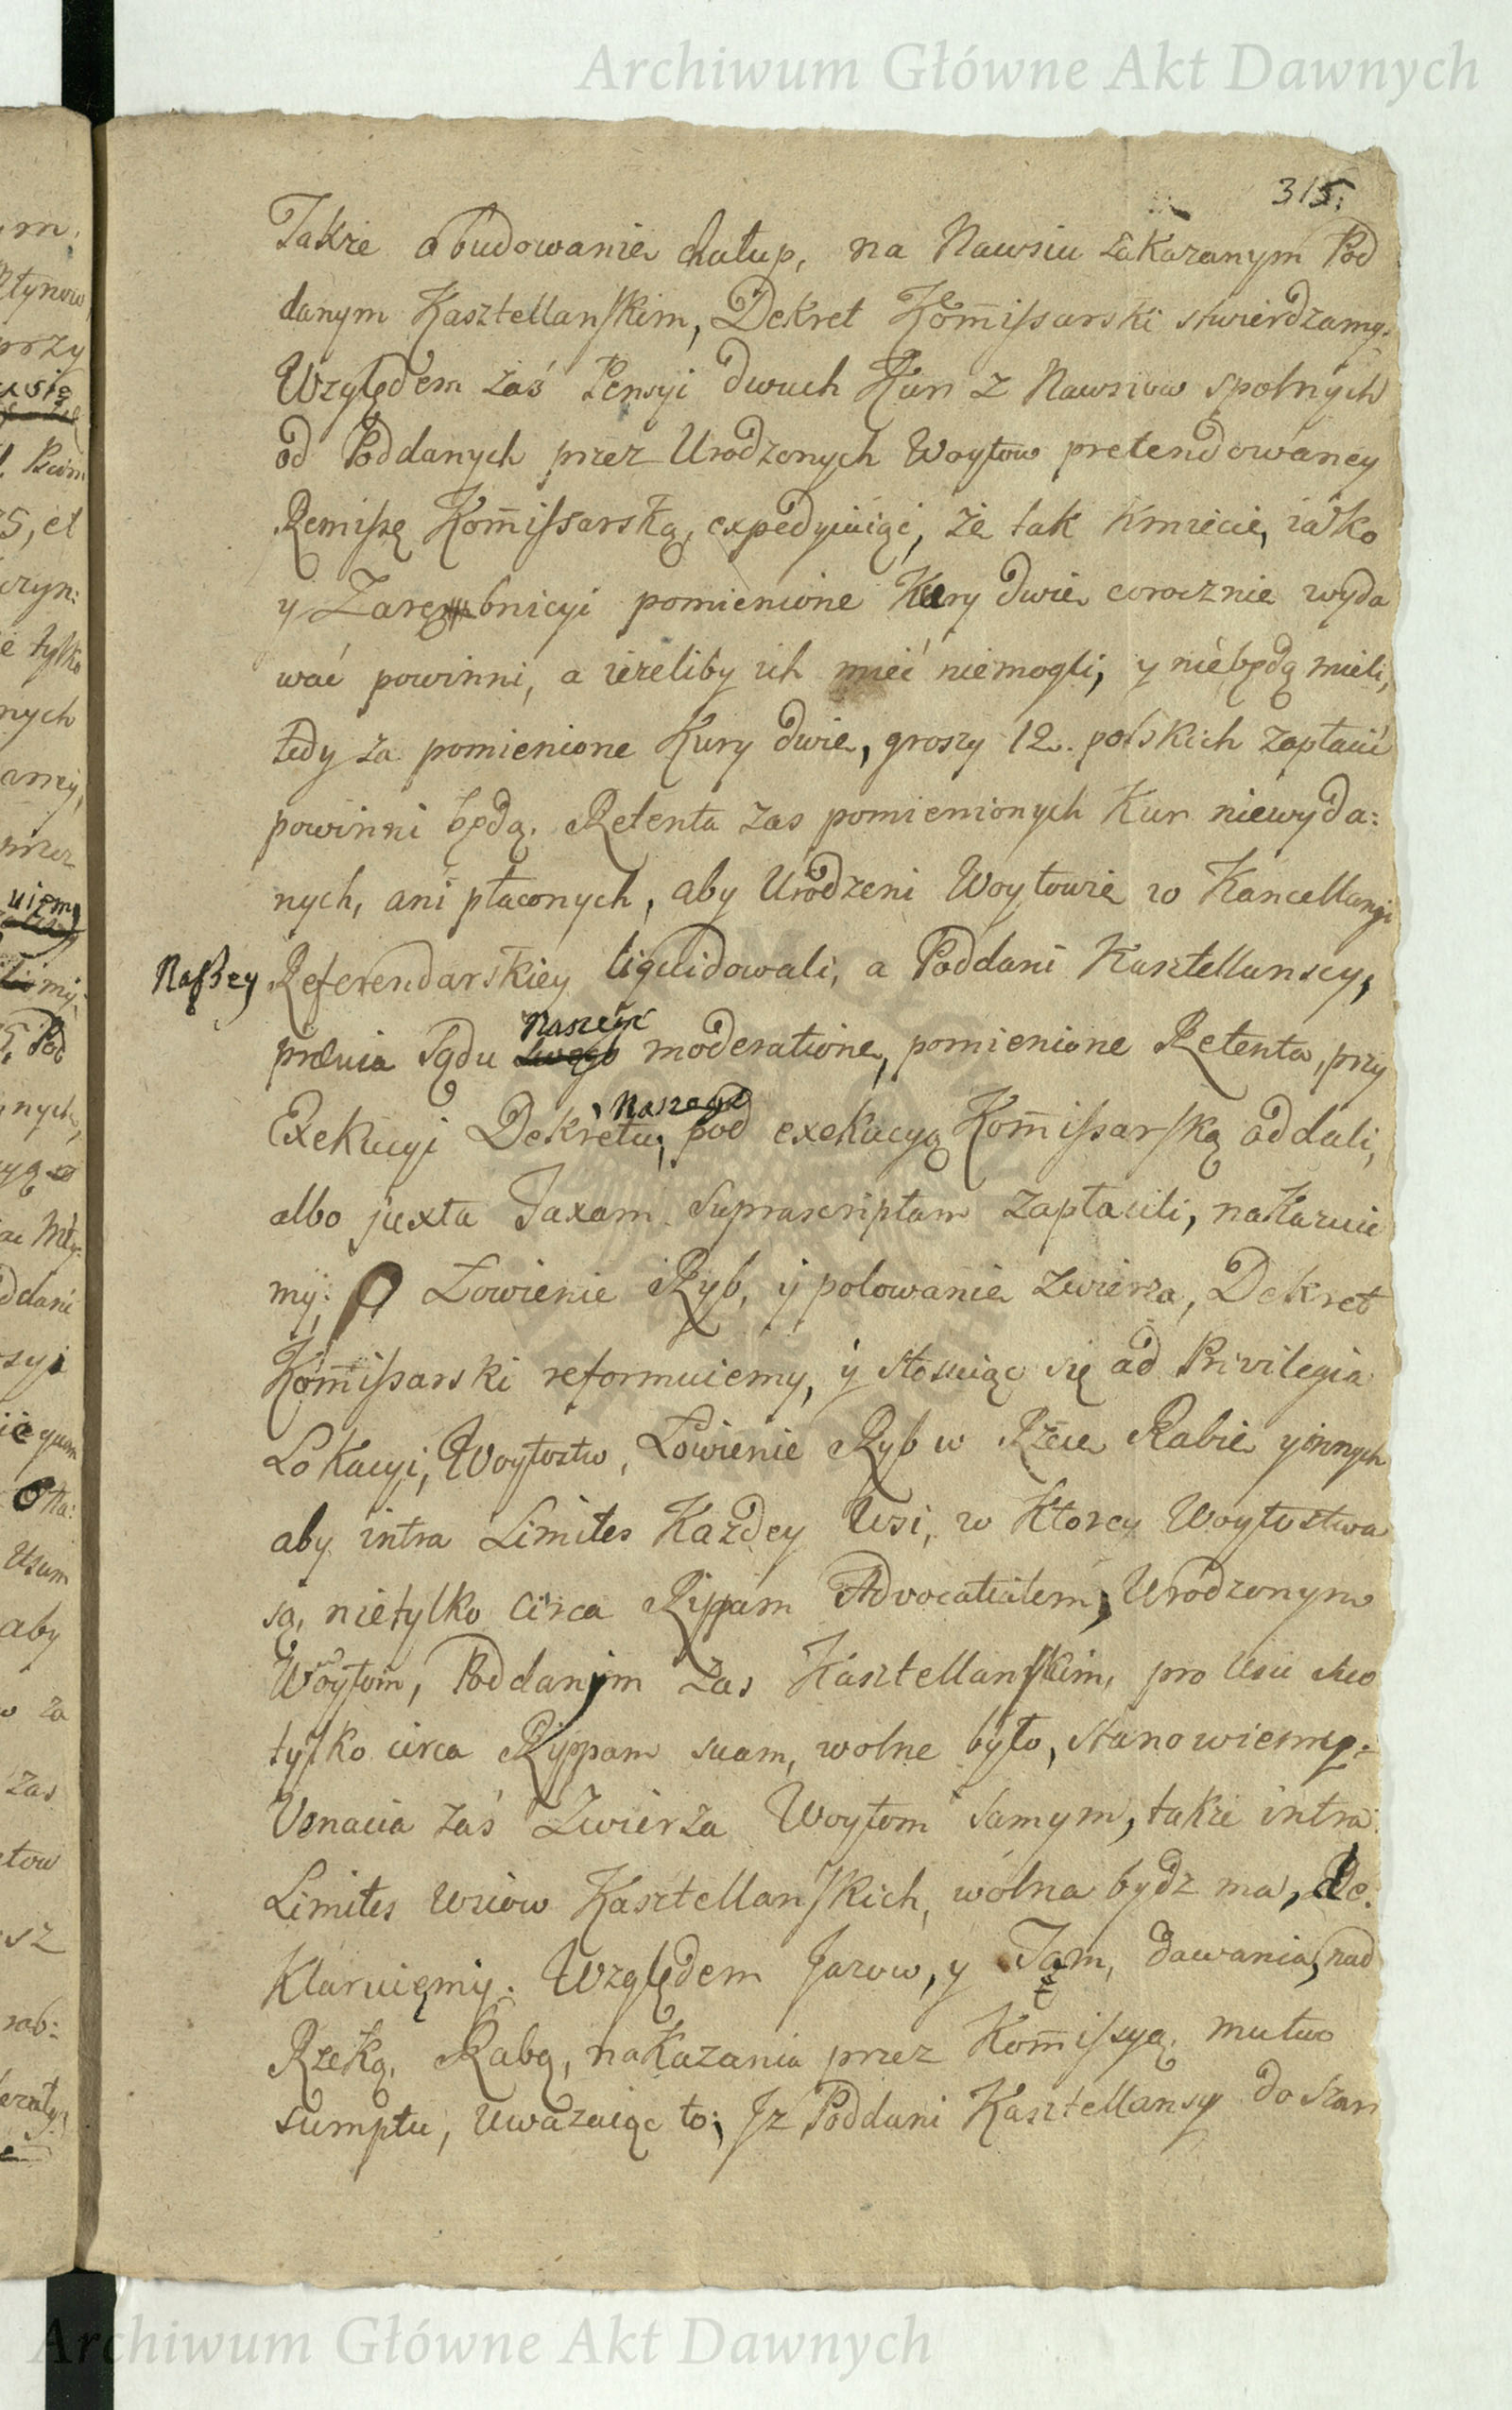 Archiwum Główne Akt Dawnych
315.
Takze o budowanie chałup, na Nawsiu zakazanym Pod
danym Kasztellanskim, Dekret Kom̃issarski stwierdzamy.
Względem zaś Pensyi dwuch Kur z Nawsiow spolnych
od Poddanych przez Urodzonych Woytow pretendowaney
Remissę Kom̃issarską, expedyiuiąc, że tak Kmiecie, iako
y Zarębnicyi pomienione Kury dwie corocznie wyda
wać powinni, a ieżeliby ich mieć niemogli, y niebędą mieli,
tedy za pomienione Kury dwie, groszy 12. polskich zapłacić
powinni będą. Retenta zas pomienionych Kur niewyda:
nych, ani płaconych, aby Urodzeni Woytowie w Kancellaryi
Naszey Referendarskiey liquidowali, a Poddani Kasztellanscy,
prævia Sądu Naszego swego moderatione, pomienione Retenta, przy
Exekucyi Dekretu Naszego, pod exekucyą Kom̃issarską oddali,
albo juxta Taxam suprascriptam zapłacili, nakazuie
my; O Łowienie Ryb, y polowanie zwierza, Dekret
Kom̃issarski reformuiemy, y stosuiąc się ad Privilegia
Lokacyi, Woytostw, Łowienie Ryb w Rzece Rabie y innych
aby intra Limites Kazdey Wsi, w ktorey Woytostwa
są, nietylko circa Rippam Advocatialem, Urodzonym
Woytom, Poddanym zas Kasztellanskim, pro usu suo
tylko circa Rippam suam, wolne było, stanowiemy.
Venacia zaś Zwierza Woytom samym, takze intra
Limites Wsiow Kasztellanskich, wolna bydz ma, de:
klaruięmy. Względem Jazow, y Tam, dawania, nad
Rzeką, Rabą, nakazania przez Kom̃issyą, mutuo
sumptu, uważaiąc to; Jz Poddani Kasztellanscy do Szar
Archiwum Główne Akt Dawnych